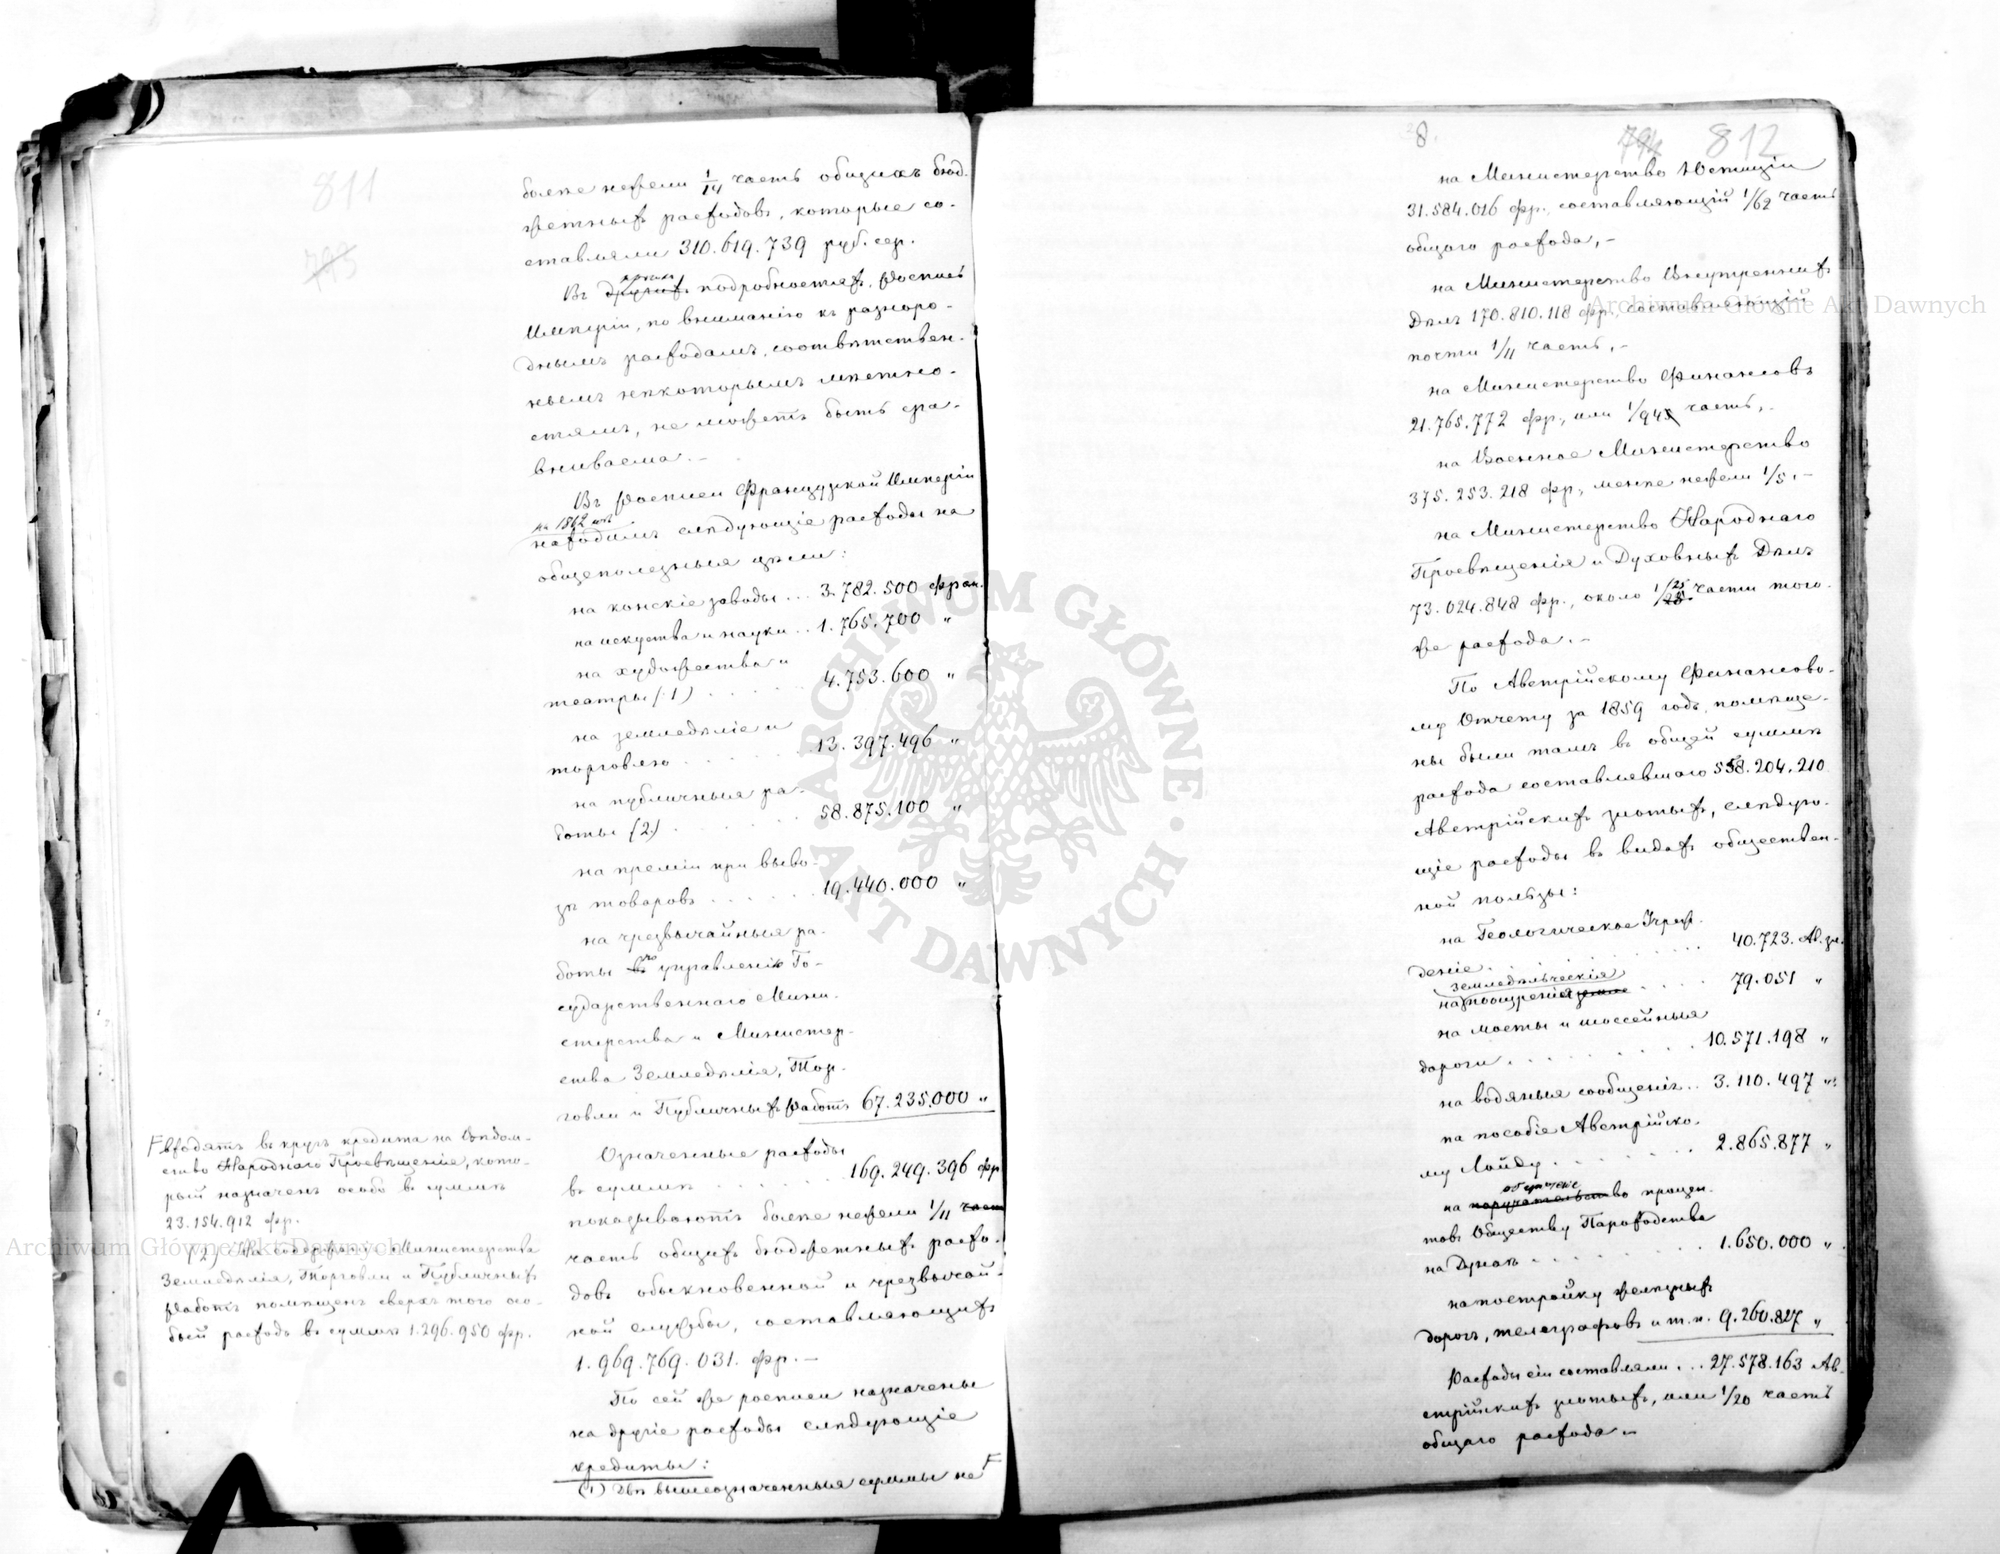 811
793
болѣе нежели 1/14 часть общихъ бюд-
жетныхъ расходовъ, которые со-
ставляли 310.619.739 руб. сер.
Въ другихъ подробностяхъ, роспись
Имперіи, по вниманію къ разноро-
днымъ расходамъ, соотвѣтствен-
нымъ нѣкоторымъ мѣстно-
стямъ, не можетъ быть сра-
вниваема.–
Въ росписи Французской Имперіи
на 1862 годъ
находимъ слѣдующіе расходы на
общеполезныя цѣли:
на конскіе заводы ... 3.782.500 фран.
на искуства и науки .. 1.765.700 "
на художества и
театры (1) . . . . . 4.753.600 "
на земледѣліе и
торговлю . . . . . . 13.397.496 "
на публичныя ра-
боты (2) . . . . . . 58.875.100 "
на преміи при выво-
зѣ товаровъ . . . . . 19.440.000 "
на чрезвычайныя ра-
боты по управленію Го-
сударственнаго Мини-
стерства и Министер-
ства Земледѣлія, Тор-
говли и Публичныхъ работъ 67.235.000 "
Означенные расходы
въ суммѣ . . . . . . 169.249.396 фр
показываютъ болѣе нежели 1/11 част
часть общихъ бюджетныхъ расхо-
довъ обыкновенной и чрезвычай-
ной службы, составляющихъ
1.969.769.031. фр.–
По сей же росписи назначены
на другіе расходы слѣдующіе
кредиты:
(1) Двѣ вышеозначенныя суммы не F
F входятъ въ кругъ кредита на Вѣдом-
ство Народнаго Просвѣщенія, кото-
рый назначенъ особо въ суммѣ
23.154.912 фр.
(2) На содержаніе Министерства
Земледѣлія, Торговли и Публичныхъ
Работъ помѣщенъ сверхъ того осо-
бый расходъ въ суммѣ 1.296.950 фр.
8.
794 812
на Министерство Юстиціи
31.584.016 фр., составляющій 1/62 часть
общаго расхода,–
на Министерство Внутреннихъ
Дѣлъ 170.810.118 фр., составляющій
почти 1/11 часть,–
на Министерство Финансовъ
21.765.772 фр., или 1/94 часть,–
на Военное Министерство
375.253.218 фр., менѣе нежели 1/5,–
на Министерство Народнаго
Просвѣщенія и Духовныхъ Дѣлъ
73.024.848 фр., около 1/25 части того-
же расхода.–
По Австрійскому Финансово-
му Отчету за 1859 годъ, помѣще-
ны были тамъ въ общей суммѣ
расхода составлявшаго 558.204.210
Австрійскихъ злотыхъ, слѣдую-
щіе расходы въ видахъ обществен-
ной пользы:
на Геологическое Учреж-
деніе . . . . . . 40.723. Ав. зл.
земледѣльческія
на поощренія . . . . 79.051 "
на мосты и шоссейныя
дороги . . . . . . . 10.571.198 "
на водяныя сообщенія .. 3.110.497 "
на пособіе Австрійско-
му Лойду . . . . . . 2.865.877 "
на поручательство процен-
товъ Обществу Пароходства
на Дунаѣ . . . . . . 1.650.000 "
на постройку желѣзныхъ
дорогъ, телеграфовъ и т.п. 9.260.827 "
Расходы сіи составляли ... 27.578.163 Ав-
стрійскихъ злотыхъ, или 1/20 часть
общаго расхода.–
Archiwum Główne Akt Dawnych
Archiwum Główne Akt Dawnych
ARCHIWUM GŁÓWNE · AKT DAWNYCH ·